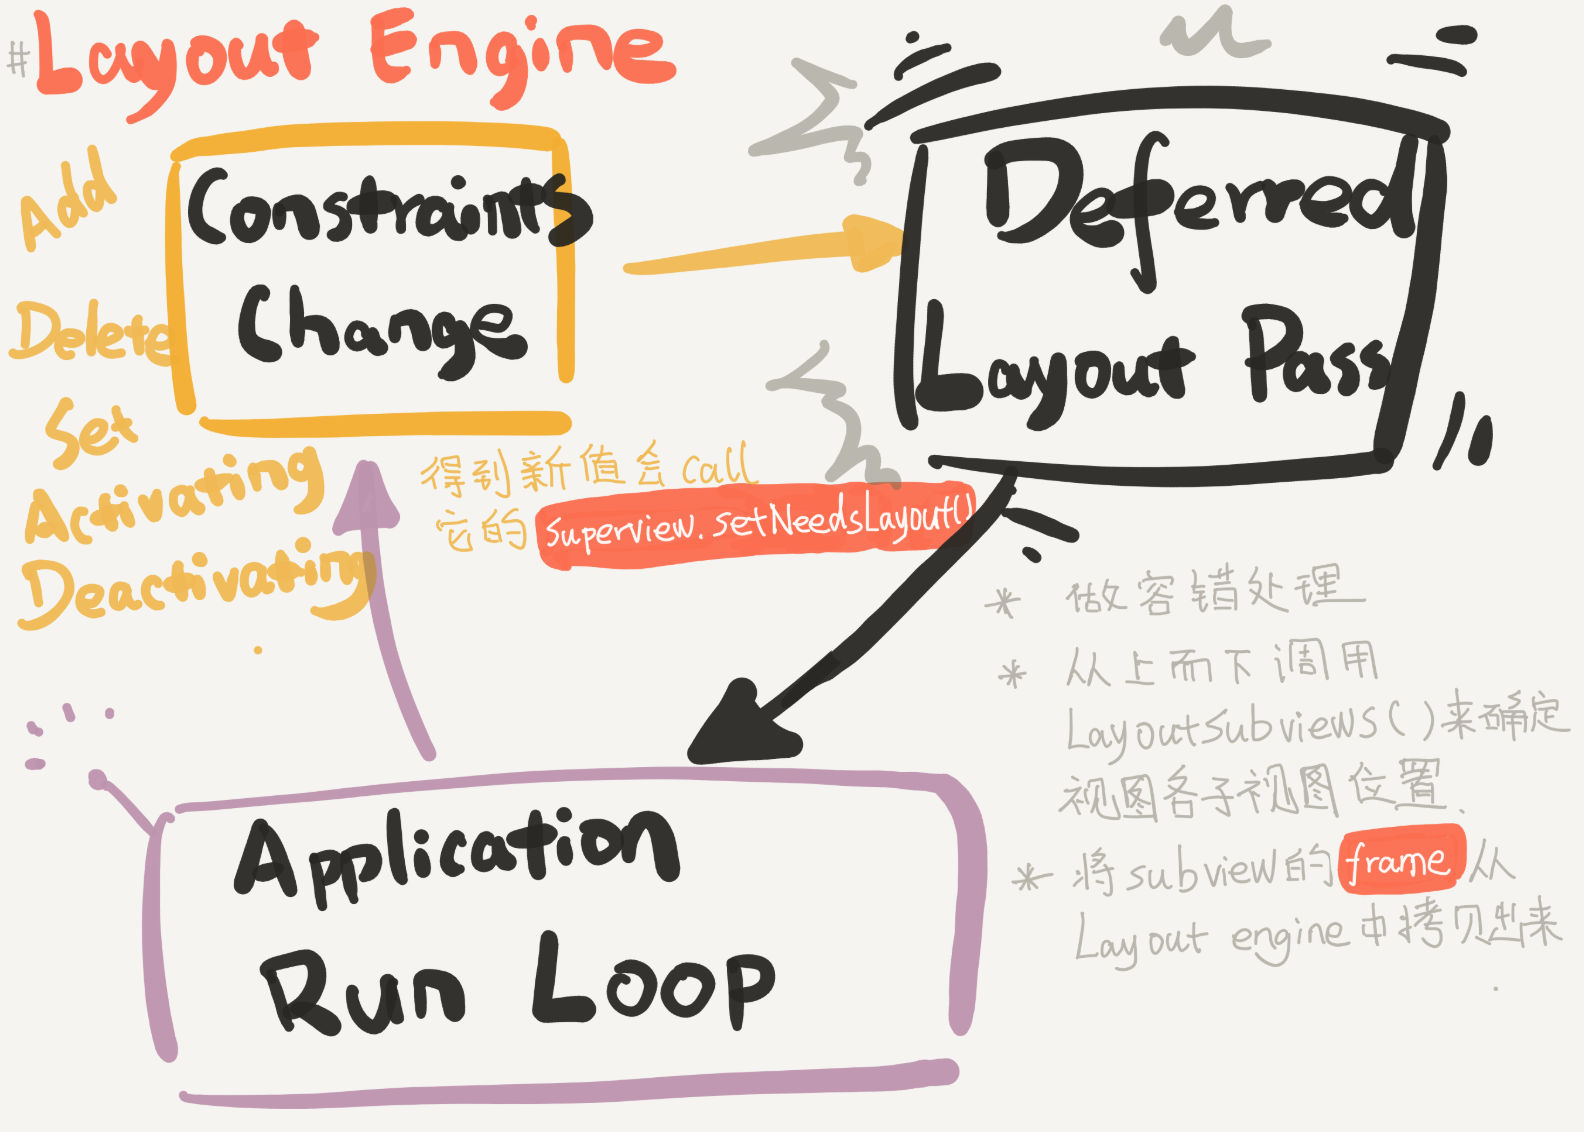 #Layout Engine
Add
Delete
Set
Activating
Deactivating
Constraints
Change
得到新值会call
它的 superview.setNeedsLayout()
Deferred
Layout Pass
* 做容错处理
* 从上而下调用
LayoutSubviews()来确定
视图各子视图位置.
* 将subview的frame从
Layout engine中拷贝出来
.
Application
Run Loop